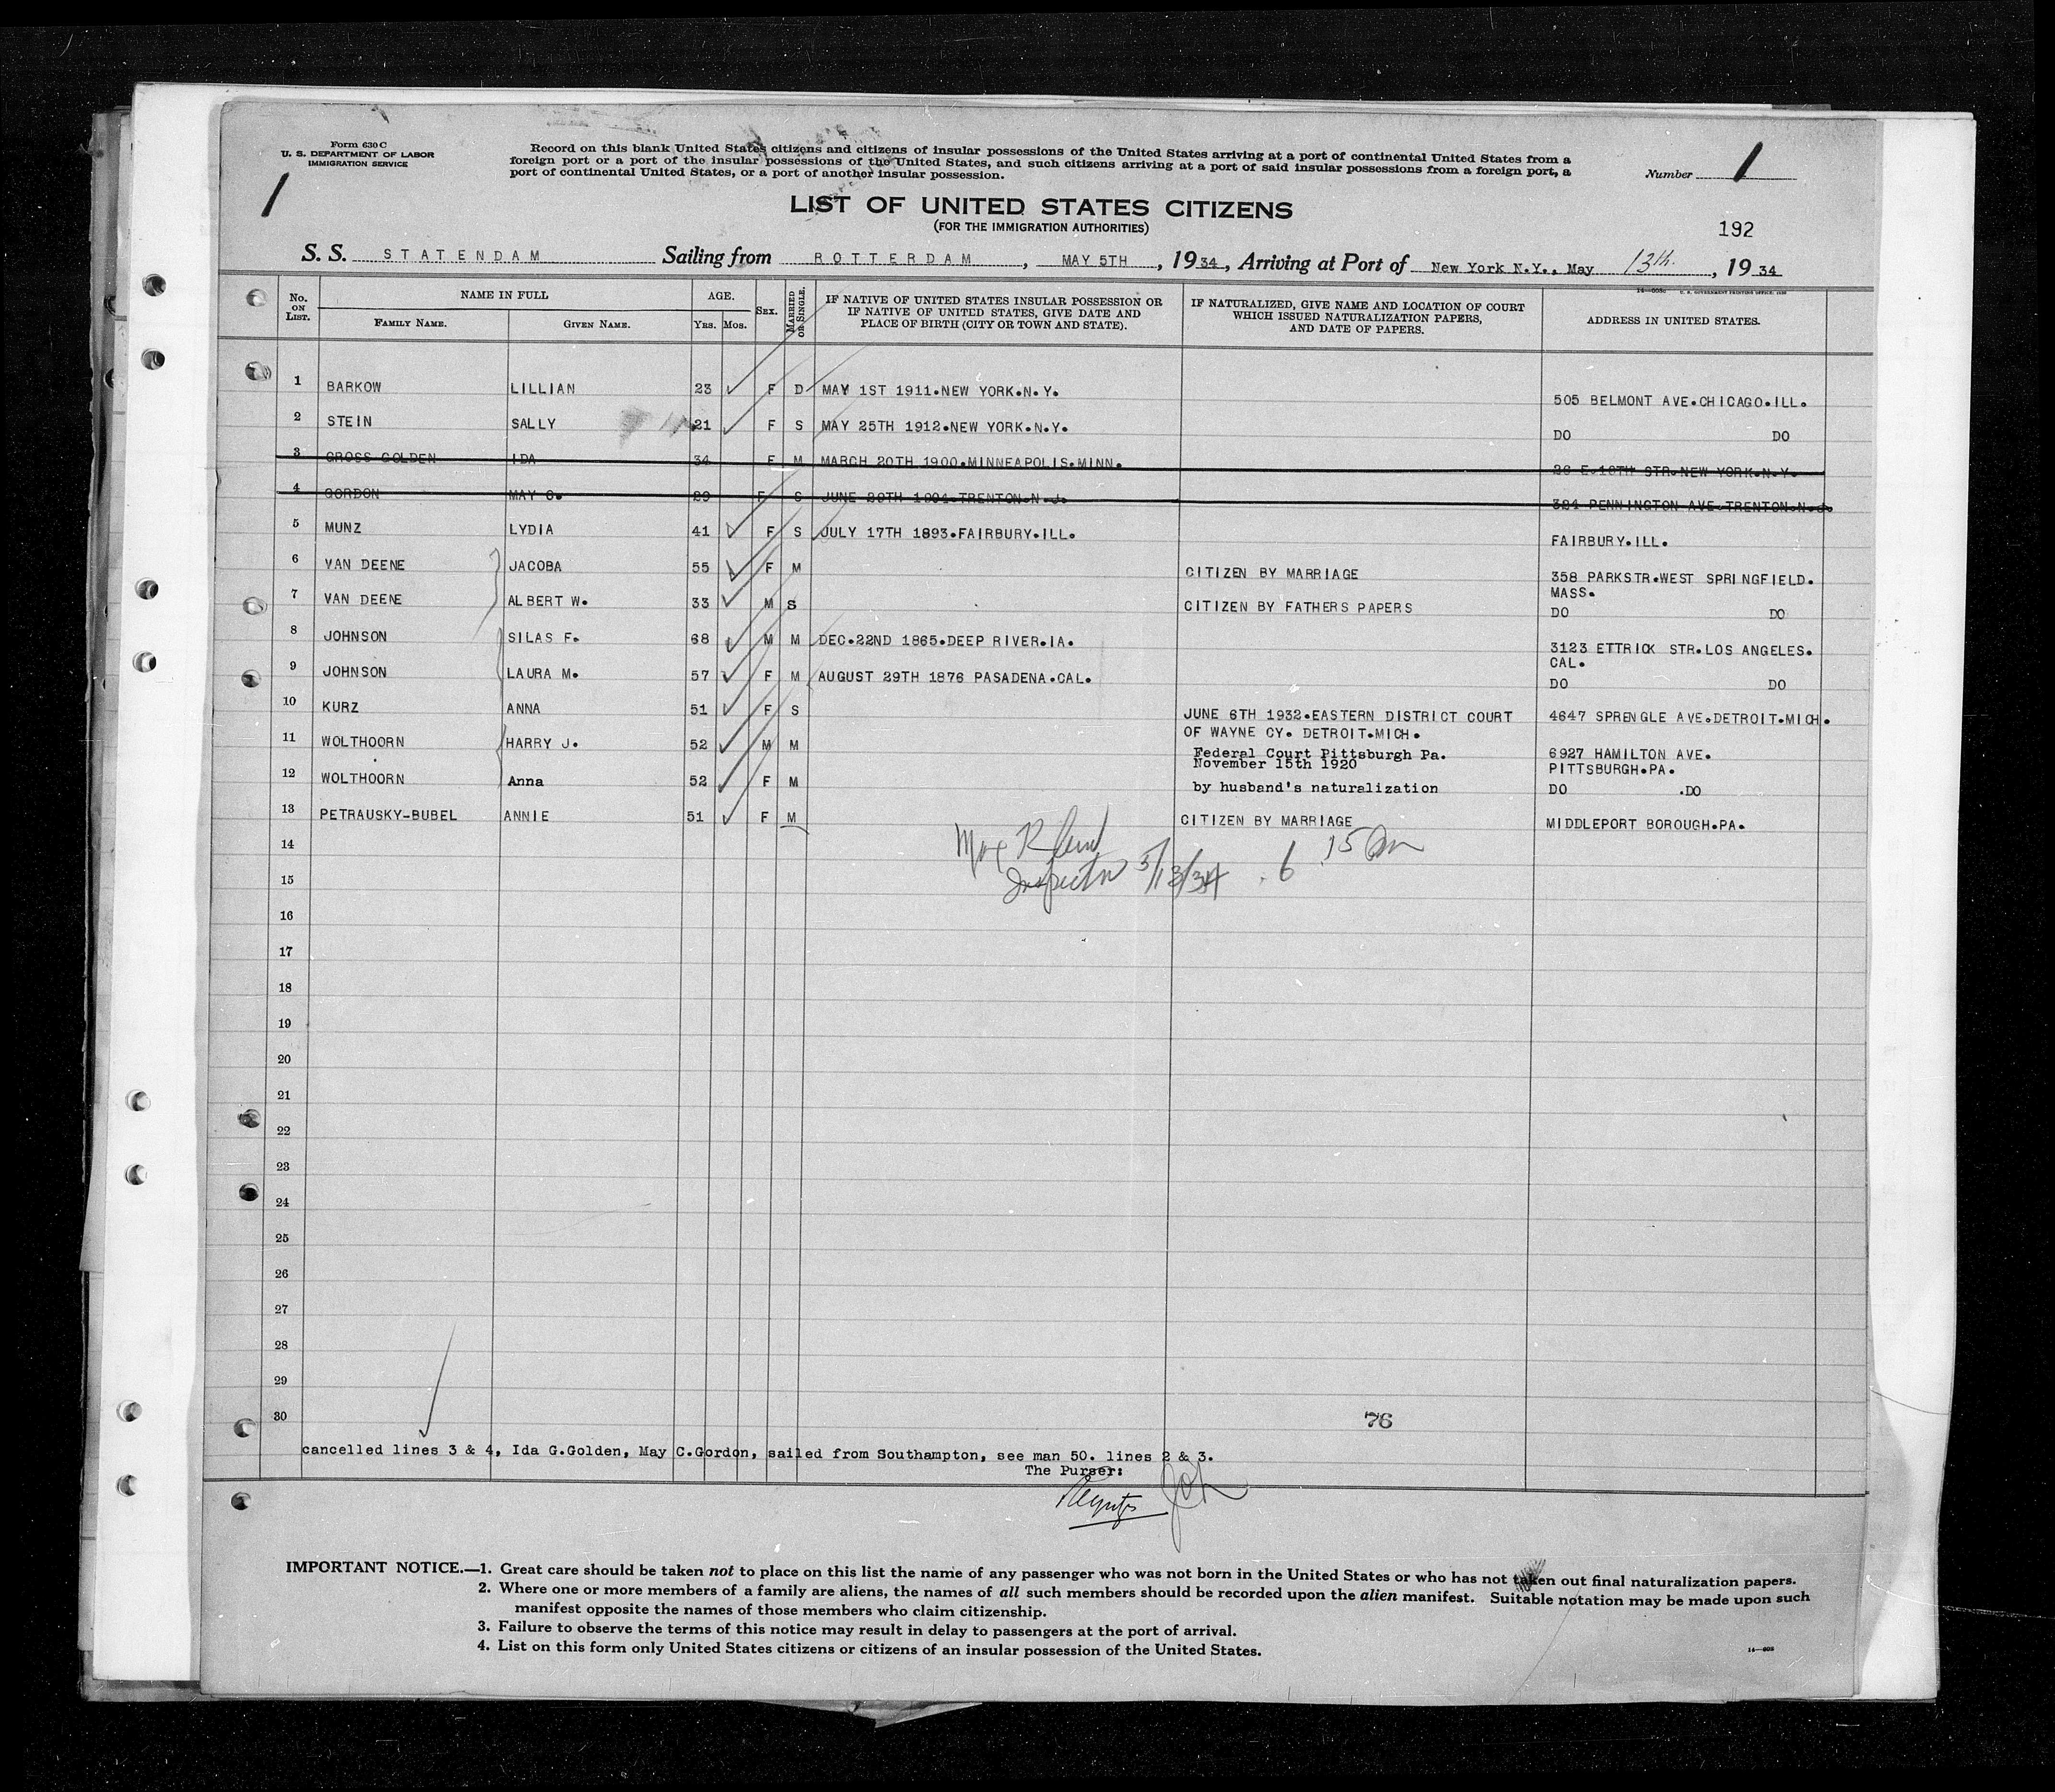 Form 630 C
U. S. DEPARTMENT OF LABOR
IMMIGRATION SERVICE
1
Record on this blank United States citizens and citizens of insular possessions of the United States arriving at a port of continental United States from a
foreign port or a port of the insular possessions of the United States, and such citizens arriving at a port of said insular possessions from a foreign port, a
port of continental United States, or a port of another insular possession.
Number 1
LIST OF UNITED STATES CITIZENS
(FOR THE IMMIGRATION AUTHORITIES)
192
S. S. STATENDAM Sailing from ROTTERDAM, MAY 5TH, 1934, Arriving at Port of New York N.Y., May 13th, 1934
No. ON LIST. NAME IN FULL FAMILY NAME. GIVEN NAME. AGE. YRS. MOS. SEX. MARRIED OR SINGLE. IF NATIVE OF UNITED STATES INSULAR POSSESSION OR IF NATIVE OF UNITED STATES, GIVE DATE AND PLACE OF BIRTH (CITY OR TOWN AND STATE). IF NATURALIZED, GIVE NAME AND LOCATION OF COURT WHICH ISSUED NATURALIZATION PAPERS, AND DATE OF PAPERS. ADDRESS IN UNITED STATES.
1 BARKOW LILLIAN 23 F D MAY 1ST 1911.NEW YORK.N.Y. 505 BELMONT AVE.CHICAGO.ILL.
2 STEIN SALLY 21 F S MAY 25TH 1912.NEW YORK.N.Y. DO DO
3 GROSS GOLDEN IDA 34 F M MARCH 20TH 1900.MINNEAPOLIS.MINN. STR.NEW YORK.N.Y.
4 GORDON MAY C. 29 F S JUNE TRENTON.N.J. 324 PENNINGTON AVE.TRENTON.N.J.
5 MUNZ LYDIA 41 F S JULY 17TH 1893.FAIRBURY.ILL. FAIRBURY.ILL.
6 VAN DEENE JACOBA 55 F M CITIZEN BY MARRIAGE 358 PARKSTR.WEST SPRINGFIELD.
MASS.
7 VAN DEENE ALBERT W. 33 M S CITIZEN BY FATHERS PAPERS DO DO
8 JOHNSON SILAS F. 68 M M DEC.22ND 1865.DEEP RIVER.IA. 3123 ETTRICK STR.LOS ANGELES.
CAL.
9 JOHNSON LAURA M. 57 F M AUGUST 29TH 1876 PASADENA.CAL. DO DO
10 KURZ ANNA 51 F S JUNE 6TH 1932.EASTERN DISTRICT COURT 4647 SPRENGLE AVE.DETROIT.MICH.
OF WAYNE CY. DETROIT.MICH.
11 WOLTHOORN HARRY J. 52 M M Federal Court Pittsburgh Pa. 6927 HAMILTON AVE.
November 15th 1920 PITTSBURGH.PA.
12 WOLTHOORN Anna 52 F M by husband's naturalization DO .DO
13 PETRAUSKY-BUBEL ANNIE 51 F M CITIZEN BY MARRIAGE MIDDLEPORT BOROUGH.PA.
14
Inspector 5/13/34 6 15
15
16
17
18
19
20
21
22
23
24
25
26
27
28
29
30
76
cancelled lines 3 & 4, Ida G.Golden, May C.Gordon, sailed from Southampton, see man 50. lines 2 & 3.
The Purser:
IMPORTANT NOTICE.—1. Great care should be taken not to place on this list the name of any passenger who was not born in the United States or who has not taken out final naturalization papers.
2. Where one or more members of a family are aliens, the names of all such members should be recorded upon the alien manifest. Suitable notation may be made upon such
manifest opposite the names of those members who claim citizenship.
3. Failure to observe the terms of this notice may result in delay to passengers at the port of arrival.
4. List on this form only United States citizens or citizens of an insular possession of the United States.